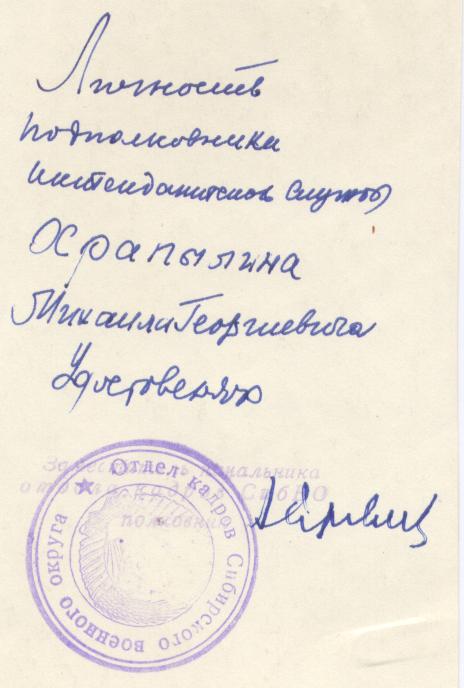 Личность
подполковника
интендантской службы
Храпылина
Михаила Георгиевича
Удостоверяю
Заместитель начальника
отдела кадров СибВО
полковник
★ Отдел кадров Сибирского военного округа